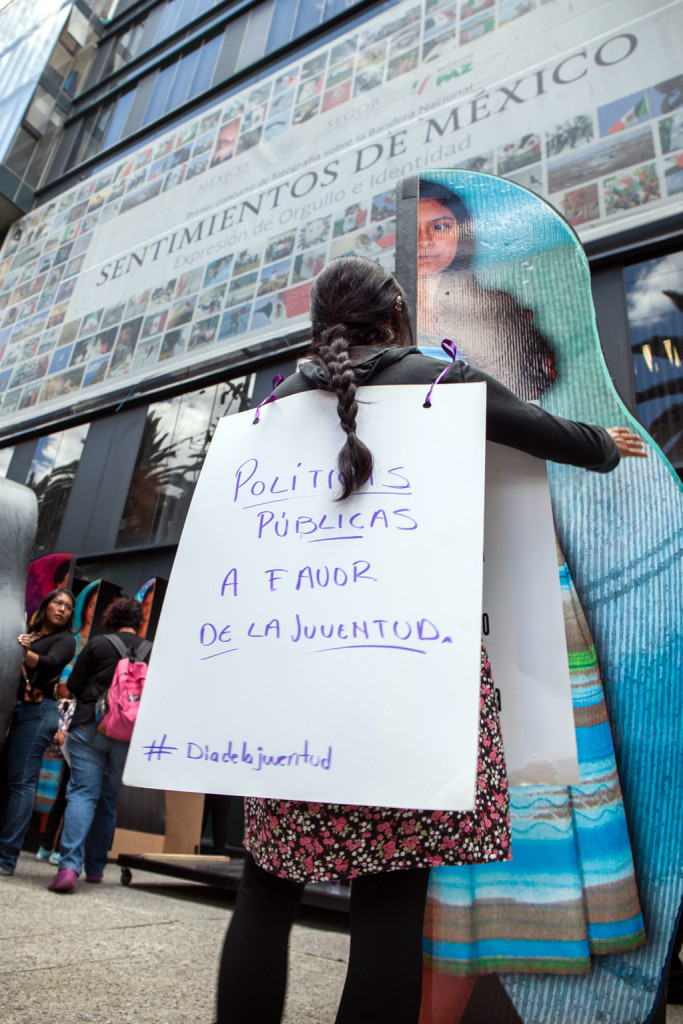 MÉXICO
SEGOB
MÉXICO
PAZ
Primer concurso de fotografía sobre la Bandera Nacional
SENTIMIENTOS DE MÉXICO
Expresión de Orgullo e Identidad
POLÍTICAS
PÚBLICAS
A FAVOR
DE LA JUVENTUD.
# Diadelajuventud